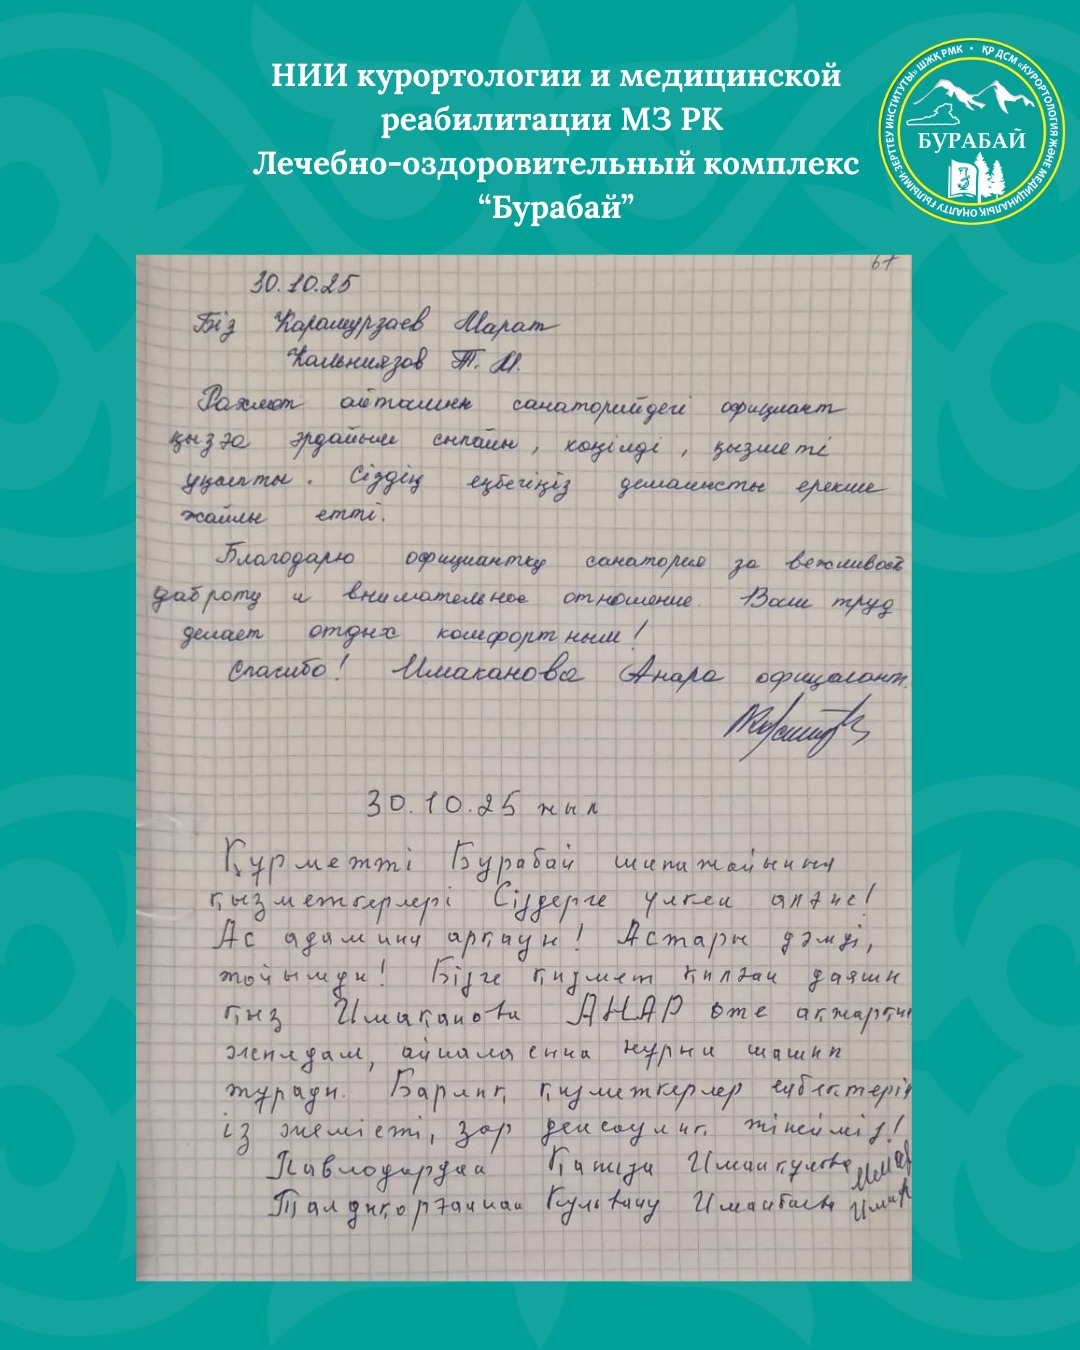 НИИ курортологии и медицинской
реабилитации МЗ РК
Лечебно-оздоровительный комплекс
“Бурабай”
ҚР ДСМ «КУРОРТОЛОГИЯ ЖӘНЕ МЕДИЦИНАЛЫҚ ОҢАЛТУ ҒЫЛЫМИ-ЗЕРТТЕУ ИНСТИТУТЫ» ШЖҚ РМК
БУРАБАЙ
67
30.10.25
Біз Карамурзаев Марат
Кальниязов Т. М.
Рахмет айтамын санаторийдегі официант
қызға әрдайым сыпайы, көңілді, қызметі
ұқыпты. Сіздің еңбегіңіз демалысты ерекше
жайлы етті.
Благодарю официантку санатория за вежливость
доброту и внимательное отношение. Ваш труд
делает отдых комфортным!
Спасибо! Имаканова Анара официант.
30.10.25 жыл
Құрметті Бурабай шипажайының
қызметкерлері Сіздерге үлкен алғыс!
Ас адамның арқауы! Астары дәмді,
тойымды! Бізге қызмет қылған даяшы
қыз Имақанова АНАР өте ақжарқын
жылдам, айналасына нұрын шашып
тұрады. Барлық қызметкерлер еңбектерің
із жемісті, зор денсаулық тілейміз!
Павлодардан Қапиза Иманқулова
Талдықорғаннан Культану